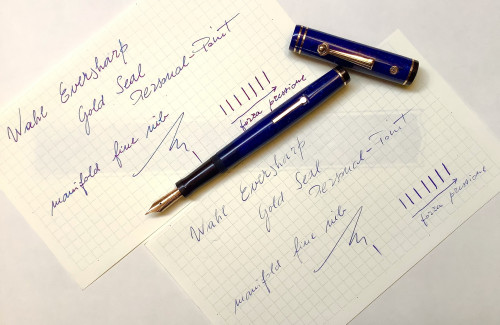 Wahl Eversharp
Gold Seal
Personal-Point
manifold fine nib
forza pressione
Wahl Eversharp
Gold Seal
Personal-Point
manifold fine nib
forza pressione